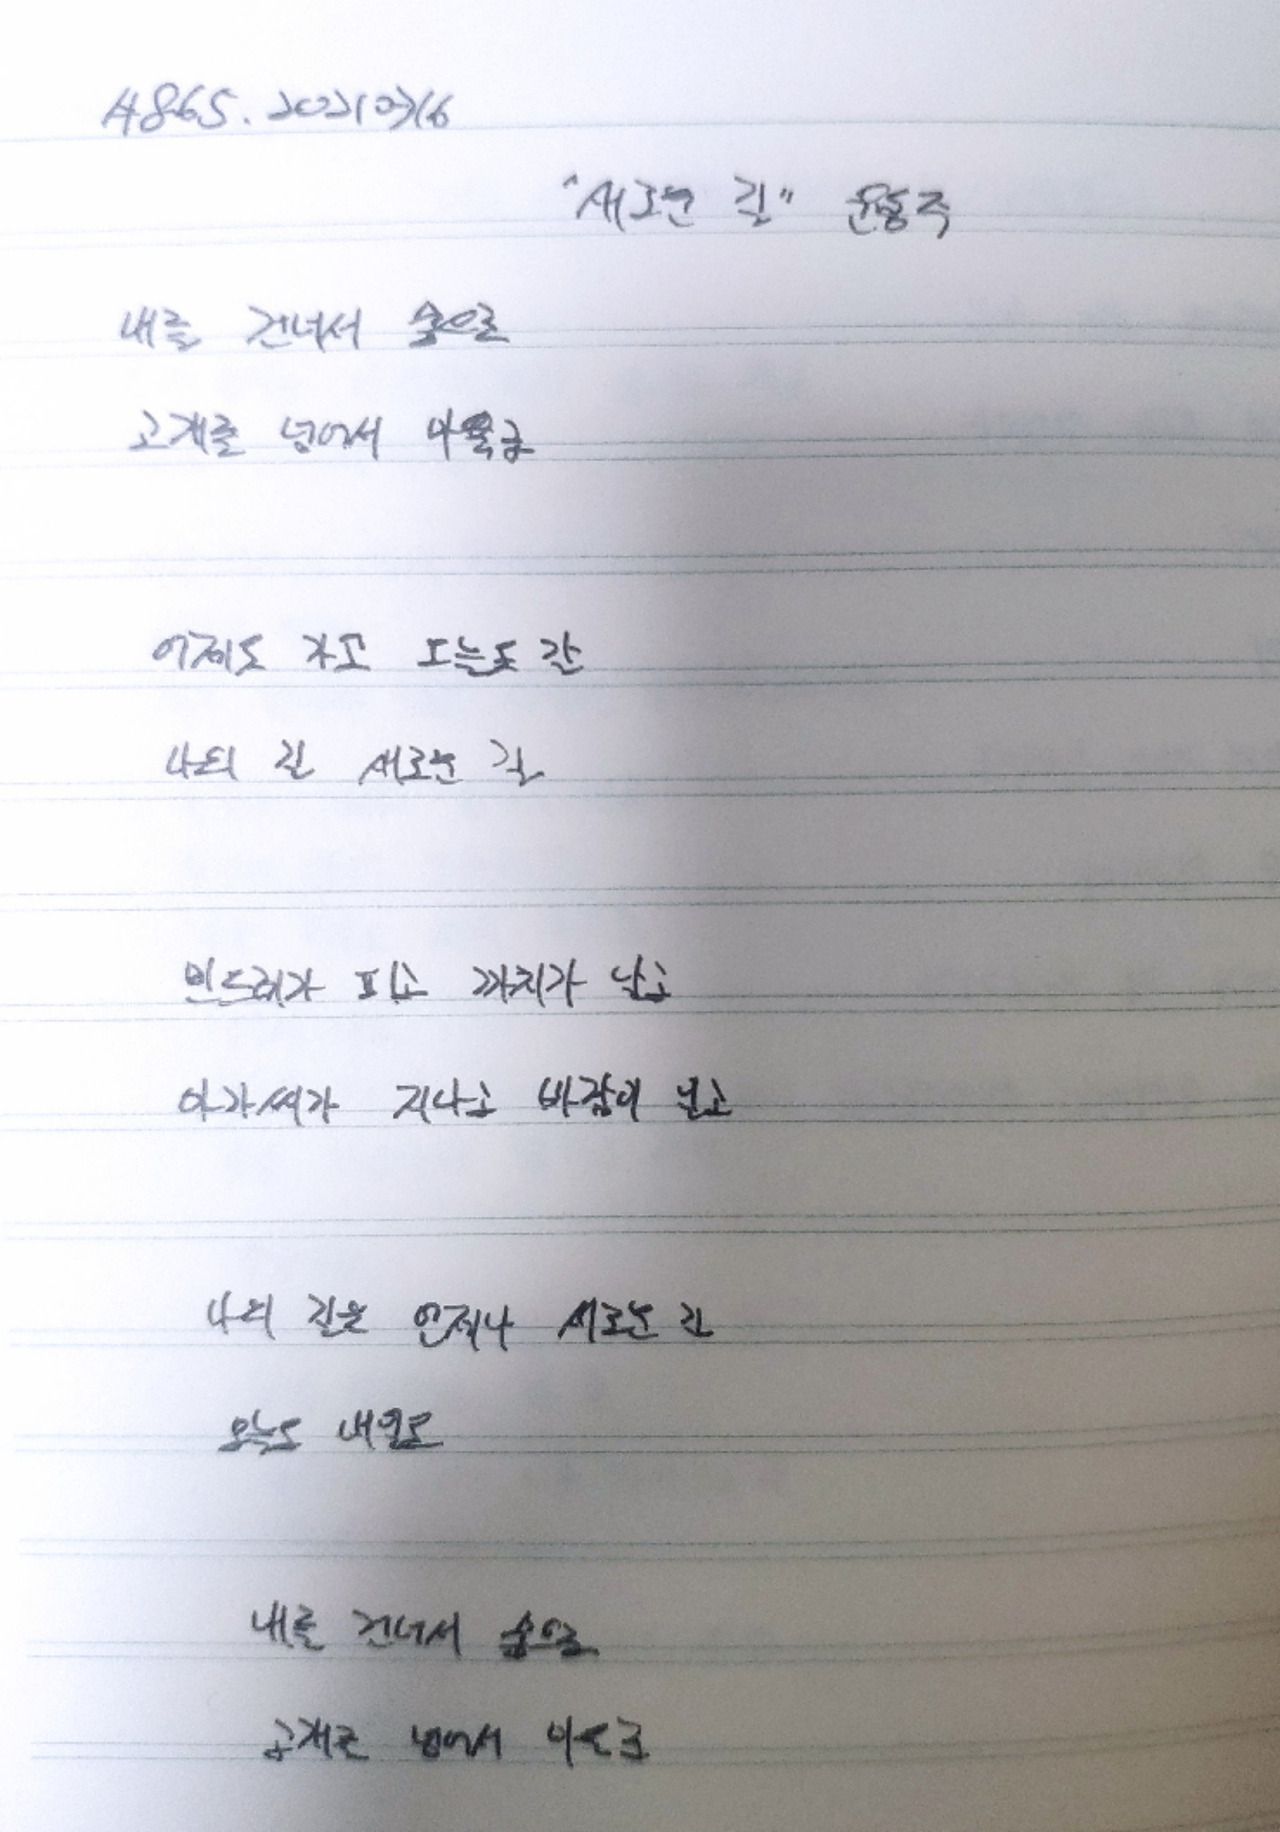 A865. 20210316
"새로운 길" 윤동주
내를 건너서 숲으로
고개를 넘어서 마을로
어제도 가고 오늘도 갈
나의 길 새로운 길
민들레가 피고 까치가 날고
아가씨가 지나고 바람이 일고
나의 길은 언제나 새로운 길
오늘도 내일도
내를 건너서 숲으로
고개를 넘어서 마을로